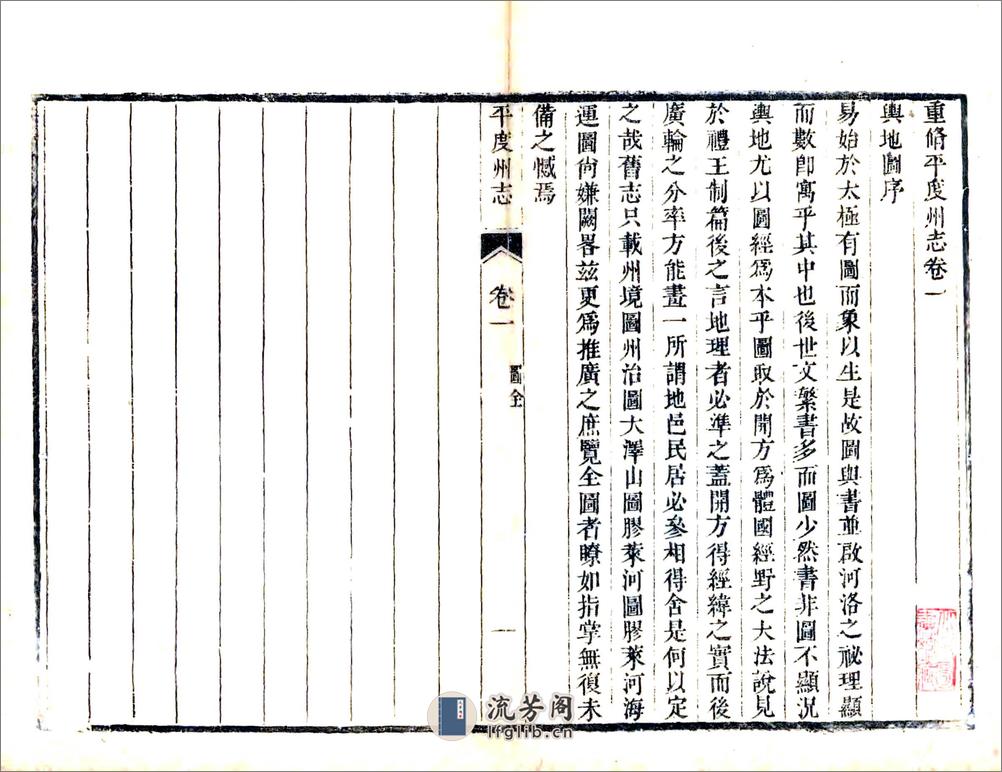 重脩平度州志卷一
輿地圖序
易始於太極有圖而象以生是故圖與書並啟河洛之祕理顯
而數卽寓乎其中也後世文繁書多而圖少然書非圖不顯況
輿地尤以圖經爲本乎圖取於開方爲體國經野之大法說見
於禮王制篇後之言地理者必準之蓋開方得經緯之實而後
廣輪之分率方能畫一所謂地邑民居必參相得舍是何以定
之哉舊志只載州境圖州治圖大澤山圖膠萊河圖膠萊河海
運圖尙嫌闕畧兹更爲推廣之庶覽全圖者瞭如指掌無復未
備之憾焉
平度州志
卷一
圖全
一
流芳阁
lfglib.cn